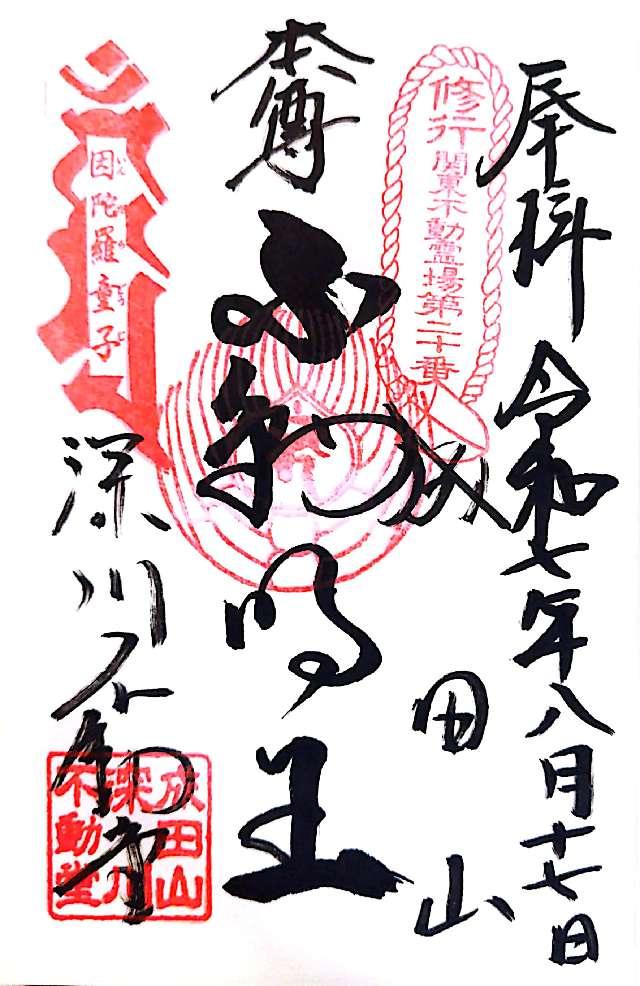 奉拝 令和七年八月十七日
修行 関東不動霊場第二十番
成田山
本尊
不動明王
因陀羅童子
深川不動
成田山
深川
不動堂